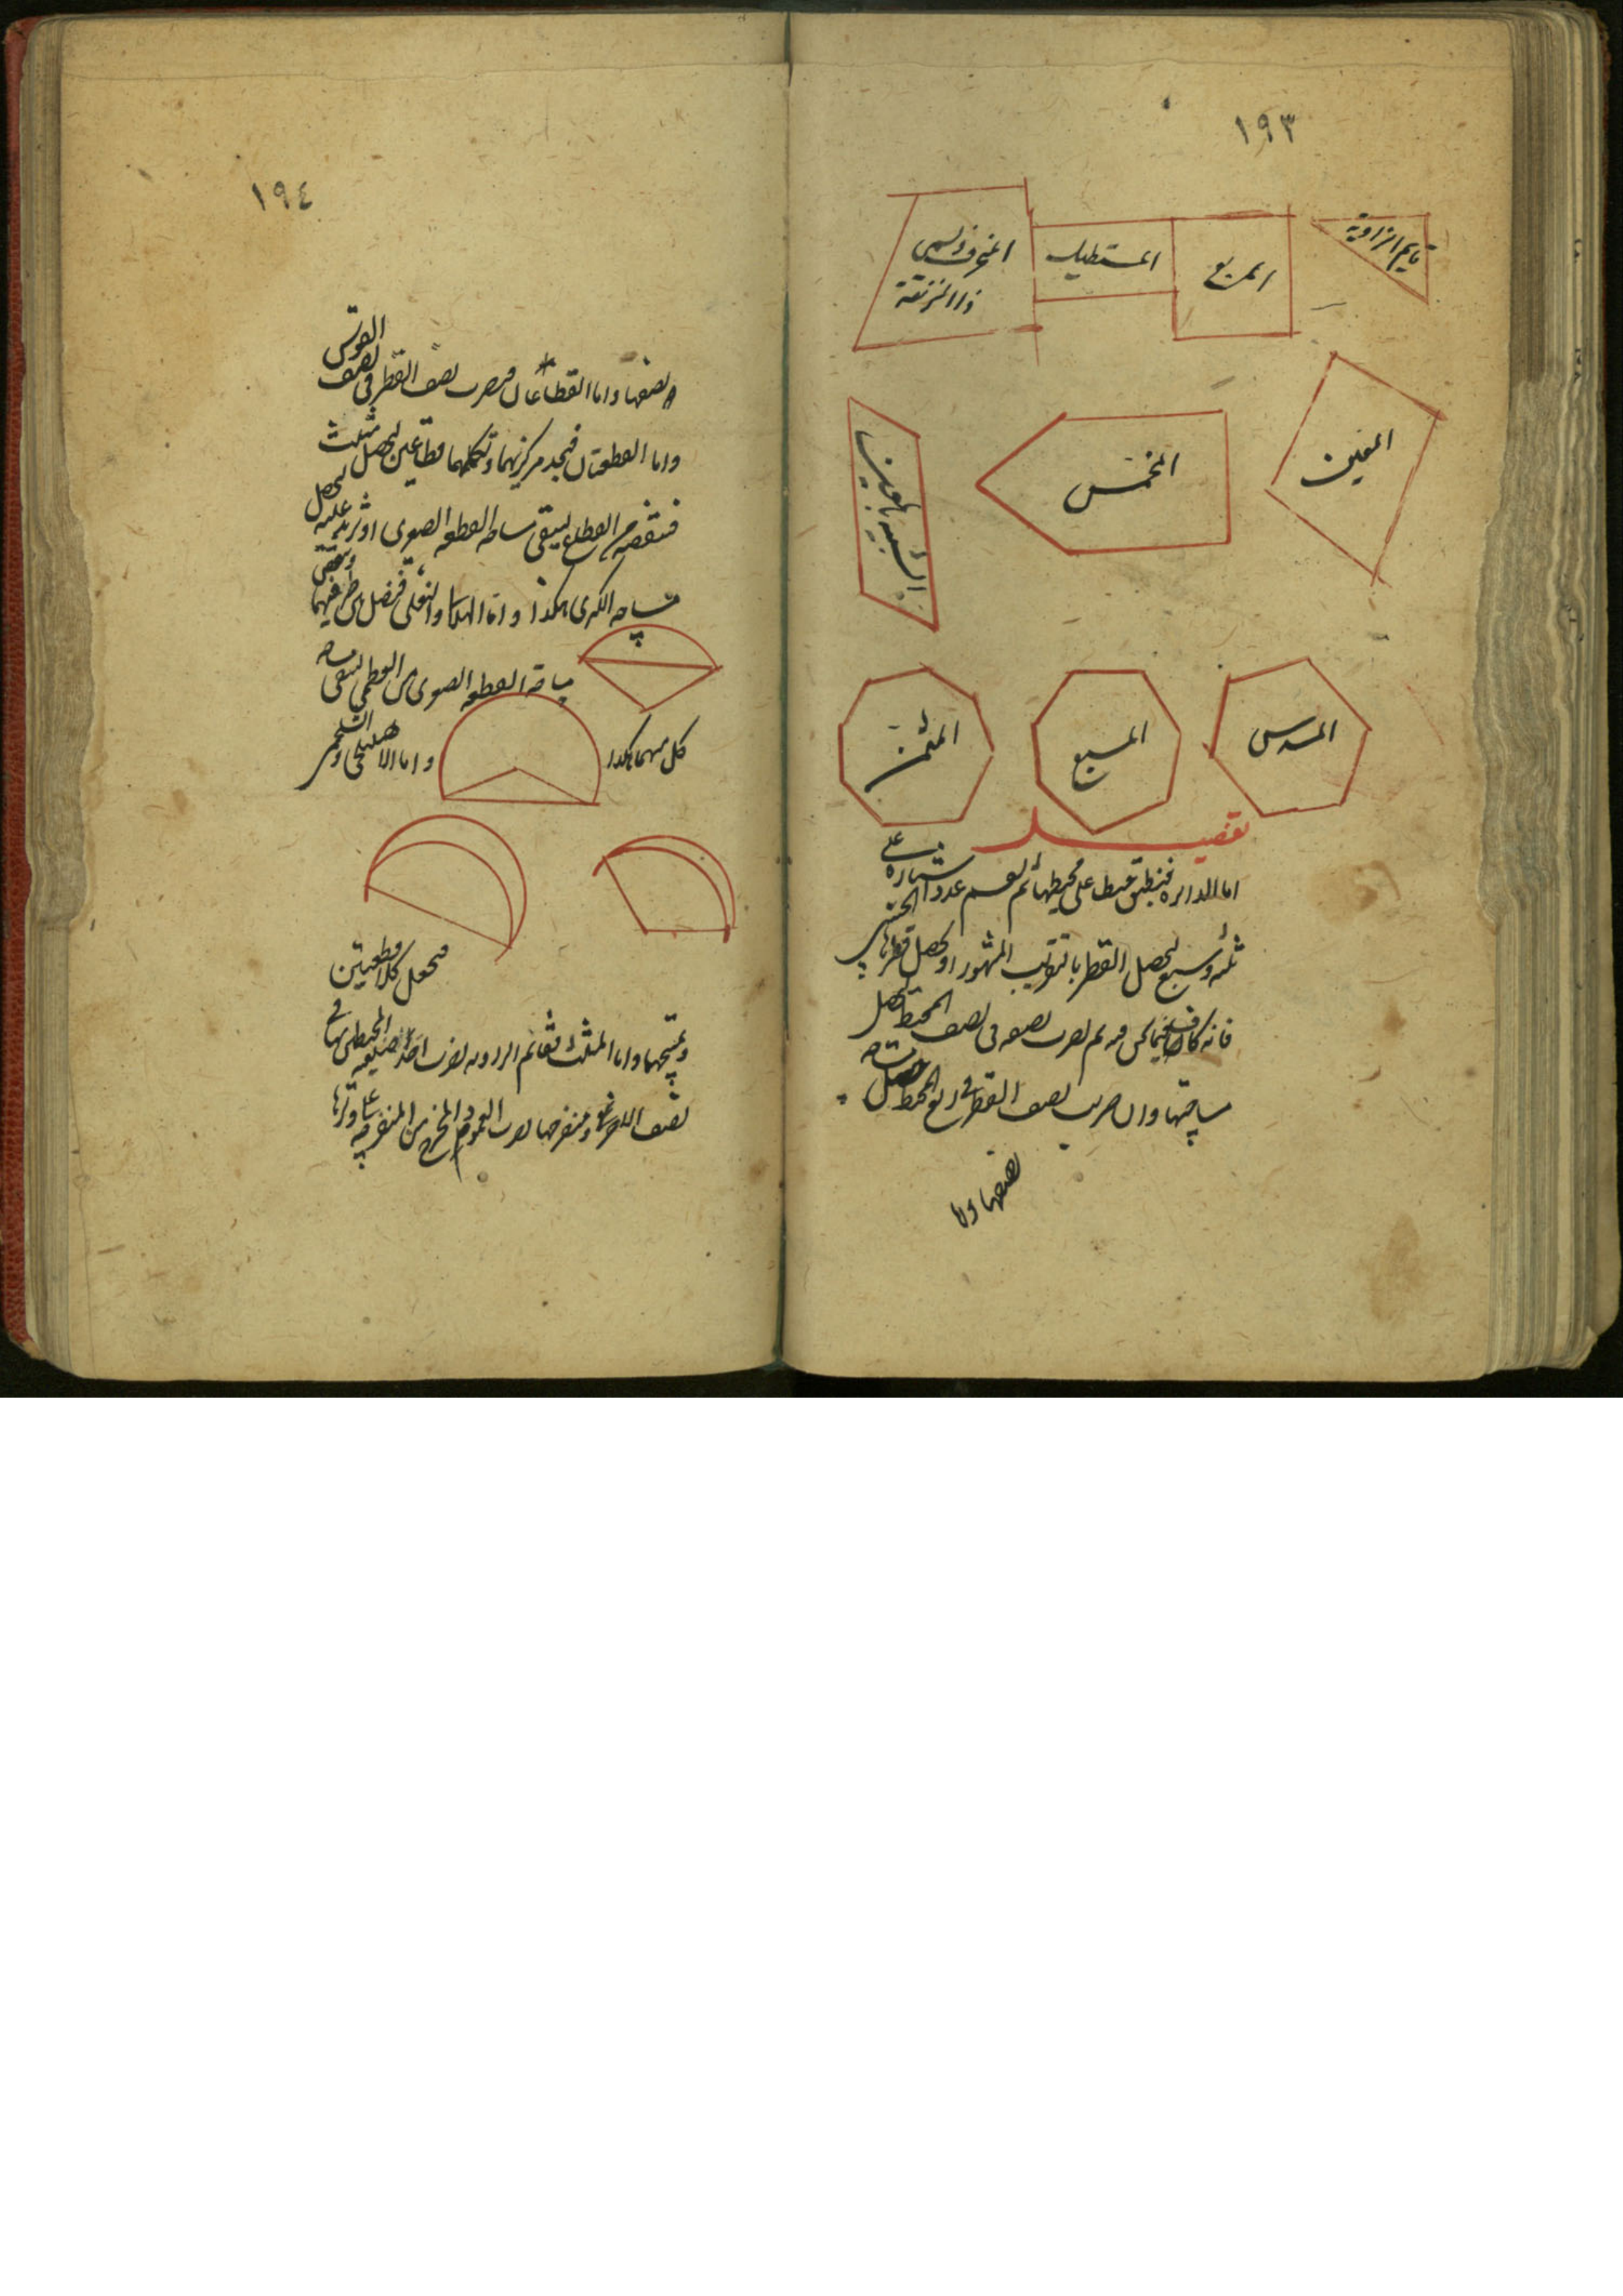 ١٩٣
قايم الزاوية
المربع
المستطيل
المنحرف ويسمى
ذا الزنقة
المعين
المخمس
الشبيه بالمعين
المسدس
المسبع
المثمن
تفصيل
اما الدايره فنطبق خيط على محيطها ثم نقسم عدد اشباره على
ثلثه وسبع ليحصل القطر بالتقريب المشهور او نحصل قطرها
فانه كاف ثم نضرب نصفه فى نصف المحيط ليحصل
مساحتها وان ضرب نصف القطر فى ربع المحيط حصل
نصفها ولا
١٩٤
ونصفها واما القطاعان فنضرب نصف القطر فى نصف القوس
واما القطعتان فنجد مركزيهما ونكملهما قطاعين ليحصل مثلث
فننقصه من القطاع ليبقى مساحه القطعه الصغرى او نزيد عليه ليحصل
مساحه الكبرى هكذا واما الهلالى والنعلى فنصل بين طرفيهما وننقص
مساحة القطعه الصغرى من العظمى ليبقى مساحه
كل منهما هكذا واما الاهليلجى والشلجمى
فنجعل كلا قطعتين
ونمسحهما واما المثلث فقائم الزاويه نضرب احد ضلعيه المحيطين بها فى
نصف الاخر ومنفرجها نضرب العمود المخرج من المنفرجه على وترها